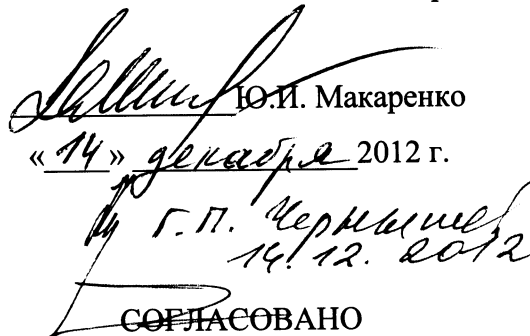 Ю.И. Макаренко
«14» декабря 2012 г.
Г.П. Черныше
14.12.2012
СОГЛАСОВАНО